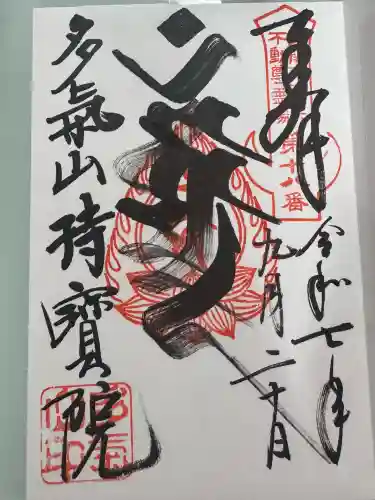 奉拜
不動尊霊場第十八番
令和七年
九月二十日
多氣山持寶院